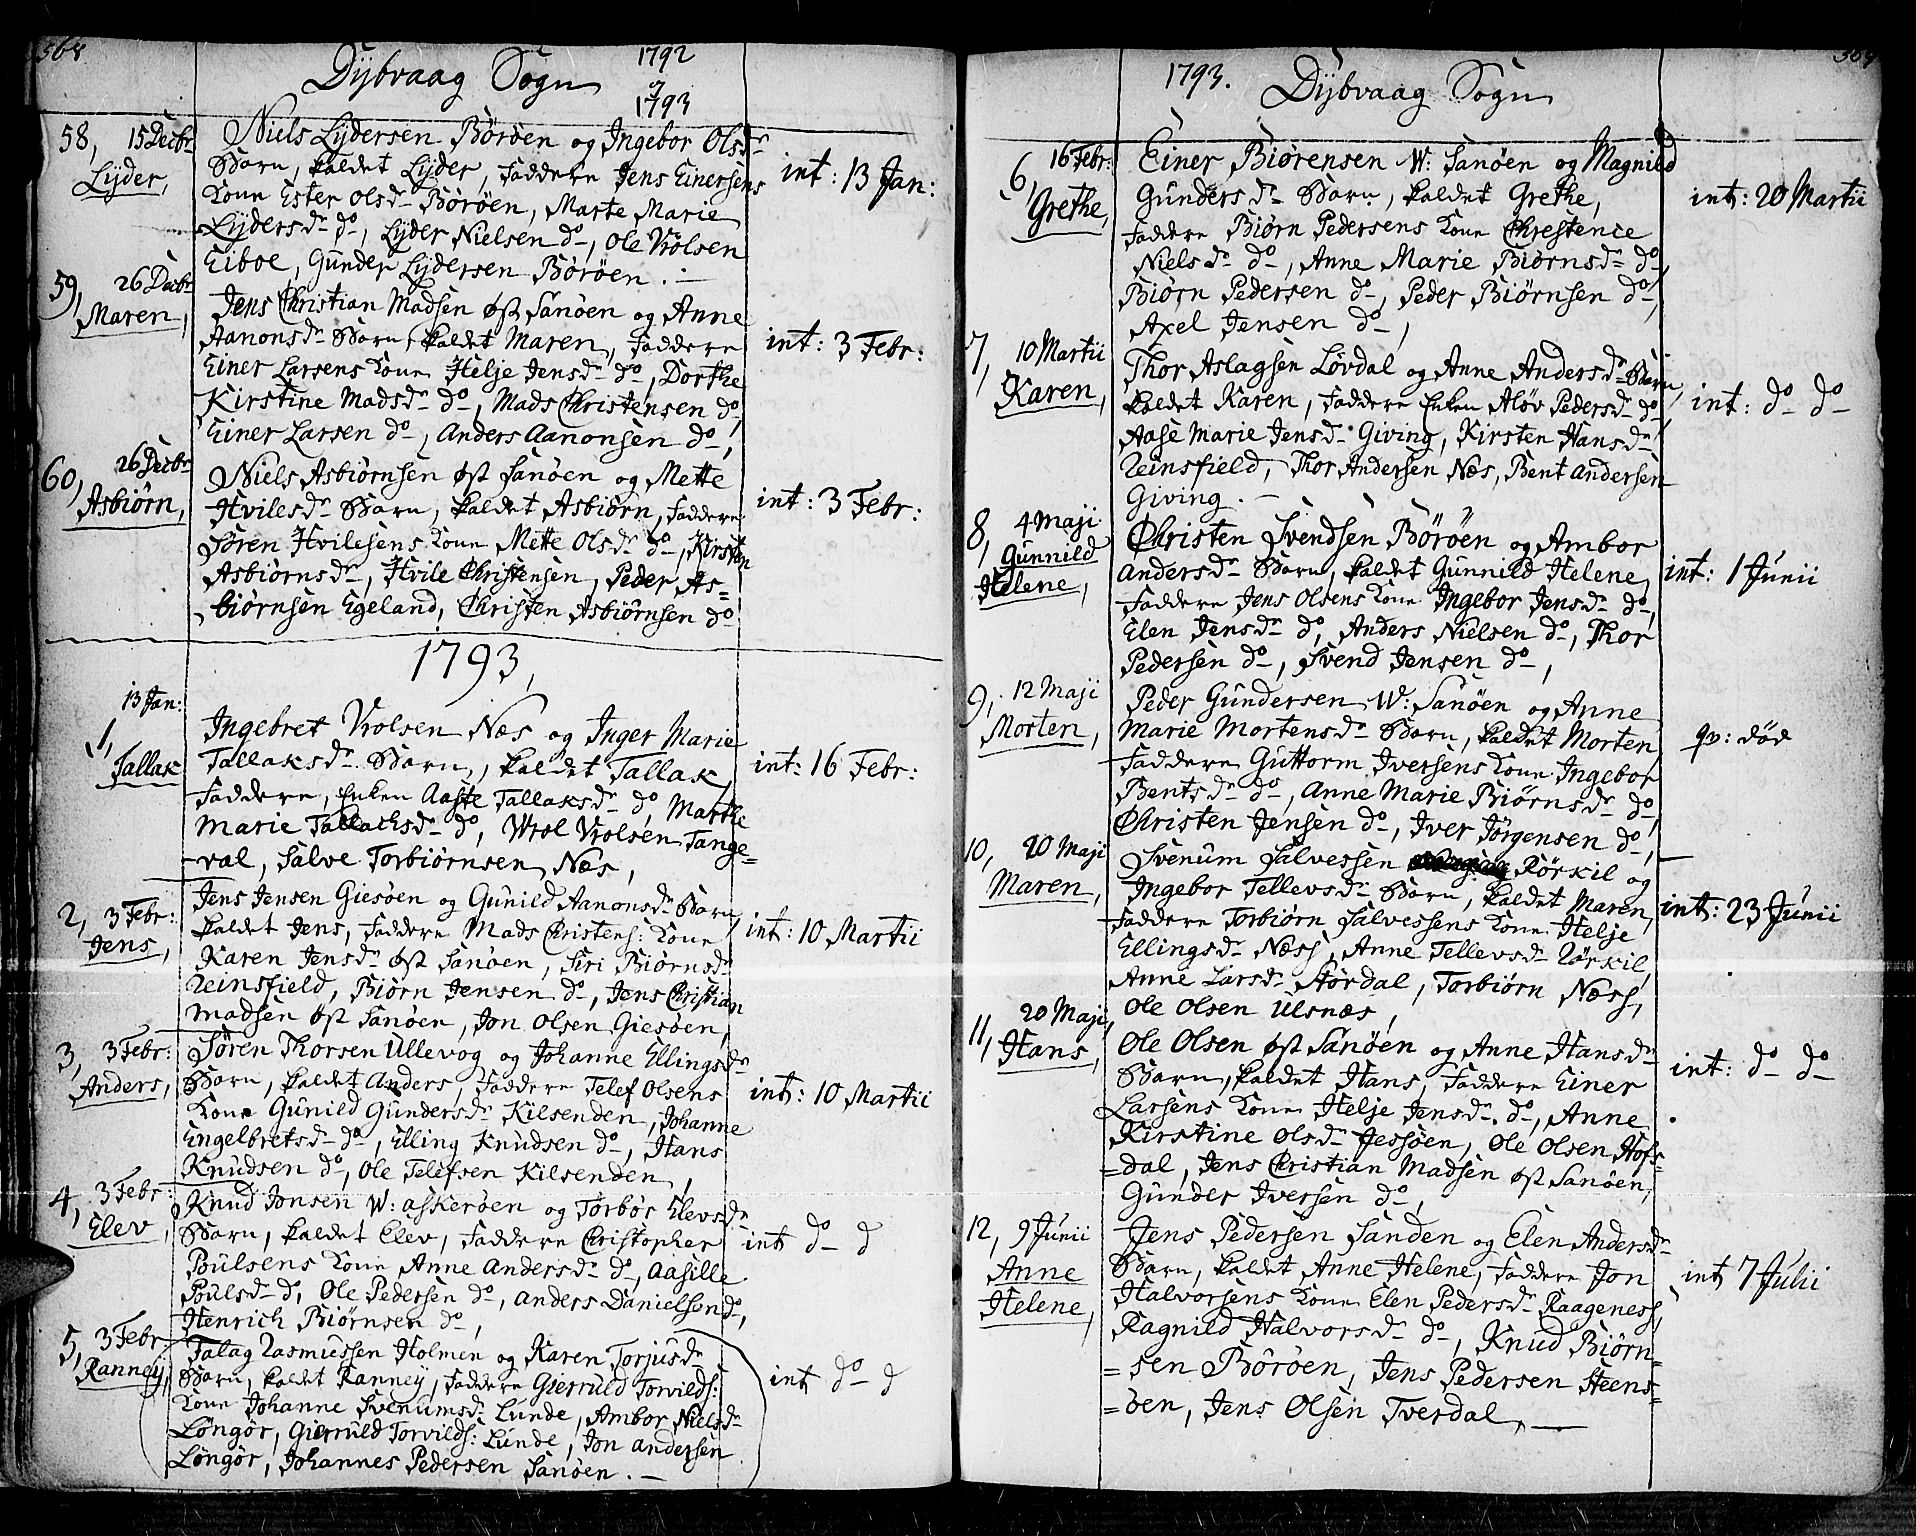 568
Dÿbvaag Sogn
1792
&
1793
58, 15 Decbr
Lÿder,
Niels Lÿdersen Börôen og Ingebor Olsdr
Barn, kaldet Lÿder, Faddere Jens Einersens
Kone Ester Olsdr Börôen, Marte Marie
Lÿdersdr do, Lÿder Nielsen do, Ole Vrolsen
Eiboe, Gunder Lÿdersen Börôen.
int: 13 Jan:
59, 26 Decbr
Maren,
Jens Christian Madsen øst Sanôen og Anne
Aanonsdr Barn, kaldet Maren, Faddere
Einer Larsens Kone Helje Jensdr do, Dorthe
Kirstine Madsdr do, Mads Christensen do,
Einer Larsen do, Anders Aanonsen do,
int: 3 Febr:
60, 26 Decbr
Asbiôrn,
Niels Asbiôrnsen øst Sanôen og Mette
Hvilesdr Barn, kaldet Asbiôrn, Faddere
Sôren Hvilesens Kone Mette Olsdr do, Kirsten
Asbiôrnsdr, Hvile Christensen, Peder As=
biôrnsen Egeland, Christen Asbiôrnsen do
int: 3 Febr:
1793,
1, 13 Jan:
Tallak
Ingebret Vrolsen Næs og Inger Marie
Tallaksdr Barn, kaldet Tallak,
Faddere, Enken Aaste Tallaksdr do, Marthe
Marie Tallachsdr do, Wrol Vrolsen Tange=
val, Salve Torbiôrnsen Næs,
int: 16 Febr:
2, 3 Febr:
Jens,
Jens Jensen Giesôen og Gunild Aanonsdr Barn,
kaldet Jens, Faddere Mads Christens: Kone
Karen Jensdr øst Sanôen, Siri Biôrnsdr
Reinsfield, Biôrn Jensen do, Jens Christian
Madsen øst Sanôen, Jon Olsen Giesôen,
int: 10 Martii
3, 3 Febr:
Anders,
Sôren Thorsen Ullevog og Johanne Ellingsdr
Barn, kaldet Anders, Faddere Telef Olsens
Kone Gunild Gundersdr Kilsenden, Johanne
Engelbretsdr do, Elling Knudsen do, Hans
Knudsen do, Ole Telefsen Kilsenden,
int: 10 Martii
4, 3 Febr:
Elev,
Knud Jonsen W: Askerôen og Torbôr Elevsdr
Barn, kaldet Elev, Faddere Christopher
Poulsens Kone Anne Andersdr do, Aasille
Poulsdr do, Ole Pedersen do, Anders Danielson do,
Henrich Biôrnsen do,
int do d
5, 3 Febr
Ranneÿ,
Talag Rasmussen Holmen og Karen Torjusdr
Barn, kaldet Ranneÿ, Faddere Gierruld Torvilds:
Kone Johanne Svenumsdr Lunde, Ambor Nielsdr
Lôngôr, Gierruld Torvilds: Lunde, Jon Andersen
Lôngôr, Johannes Pedersen Sanôen.
int do d
1793. Dÿbvaag Sogn
6, 16 Febr:
Grethe,
Einer Biôrensen W: Sanôen og Magnild
Gundersdr Barn, kaldet Grethe,
Faddere Biôrn Pedersens Kone Chrestence
Nielsdr do, Anne Marie Biôrnsdr do,
Biôrn Pedersen do, Peder Biôrnsen do,
Axel Jensen do,
int: 20 Martii
7, 10 Martii
Karen,
Thor Aslagsen Lôvdal og Anne Andersdr Barn,
kaldet Karen, Faddere Enken Alôv Pedersdr do,
Aase Marie Jensdr Giving, Kirsten Hansdr
Reinsfield, Thor Andersen Næs, Bent Andersen
Giving.
int: do do
8, 4 Maji
Gunnild
Helene,
Christen Svendsen Börôen og Ambor
Andersdr Barn, kaldet Gunnild Helene,
Faddere Jens Olsens Kone Ingebor Jensdr do,
Elen Jensdr do, Anders Nielsen do, Thor
Pedersen do, Svend Jensen do,
int: 1 Junii
9, 12 Maji
Morten,
Peder Gundersen W: Sanôen og Anne
Marie Mortensdr Barn, kaldet Morten,
Faddere Guttorm Iversens Kone Ingebor
Bentsdr do, Anne Marie Biôrnsdr do,
Christen Jensen do, Iver Jôrgensen do,
qv: död
10, 20 Maji
Maren,
Svenum Salvessen Rôrkil og
Ingebor Tellevsdr Barn, kaldet Maren,
Faddere Torbiôrn Salvessens Kone Helje
Ellingsdr Næss, Anne Tellevsdr Rôrkil,
Anne Larsdr Hôrdal, Torbiôrn Næss,
Ole Olsen Ulsnæs,
int: 23 Junii
11, 20 Maji,
Hans,
Ole Olsen øst Sanôen og Anne Hansdr
Barn, kaldet Hans, Faddere Einer
Larsens Kone Helje Jensdr do, Anne
Kirstine Olsdr Jessôen, Ole Olsen Hofs=
=dal, Jens Christian Madsen øst Sanôen,
Gunder Iversen do,
int: do do
12, 9 Junii
Anne
Helene,
Jens Pedersen Sanden og Elen Andersdr
Barn, kaldet Anne Helene, Faddere Jon
Halvorsens Kone Elen Pedersdr Raageness,
Ragnild Halvorsdr do, Knud Biôrn=
=sen Bôrôen, Jens Pedersen Steens=
=ôen, Jens Olsen Tverdal,
int 7 Julii